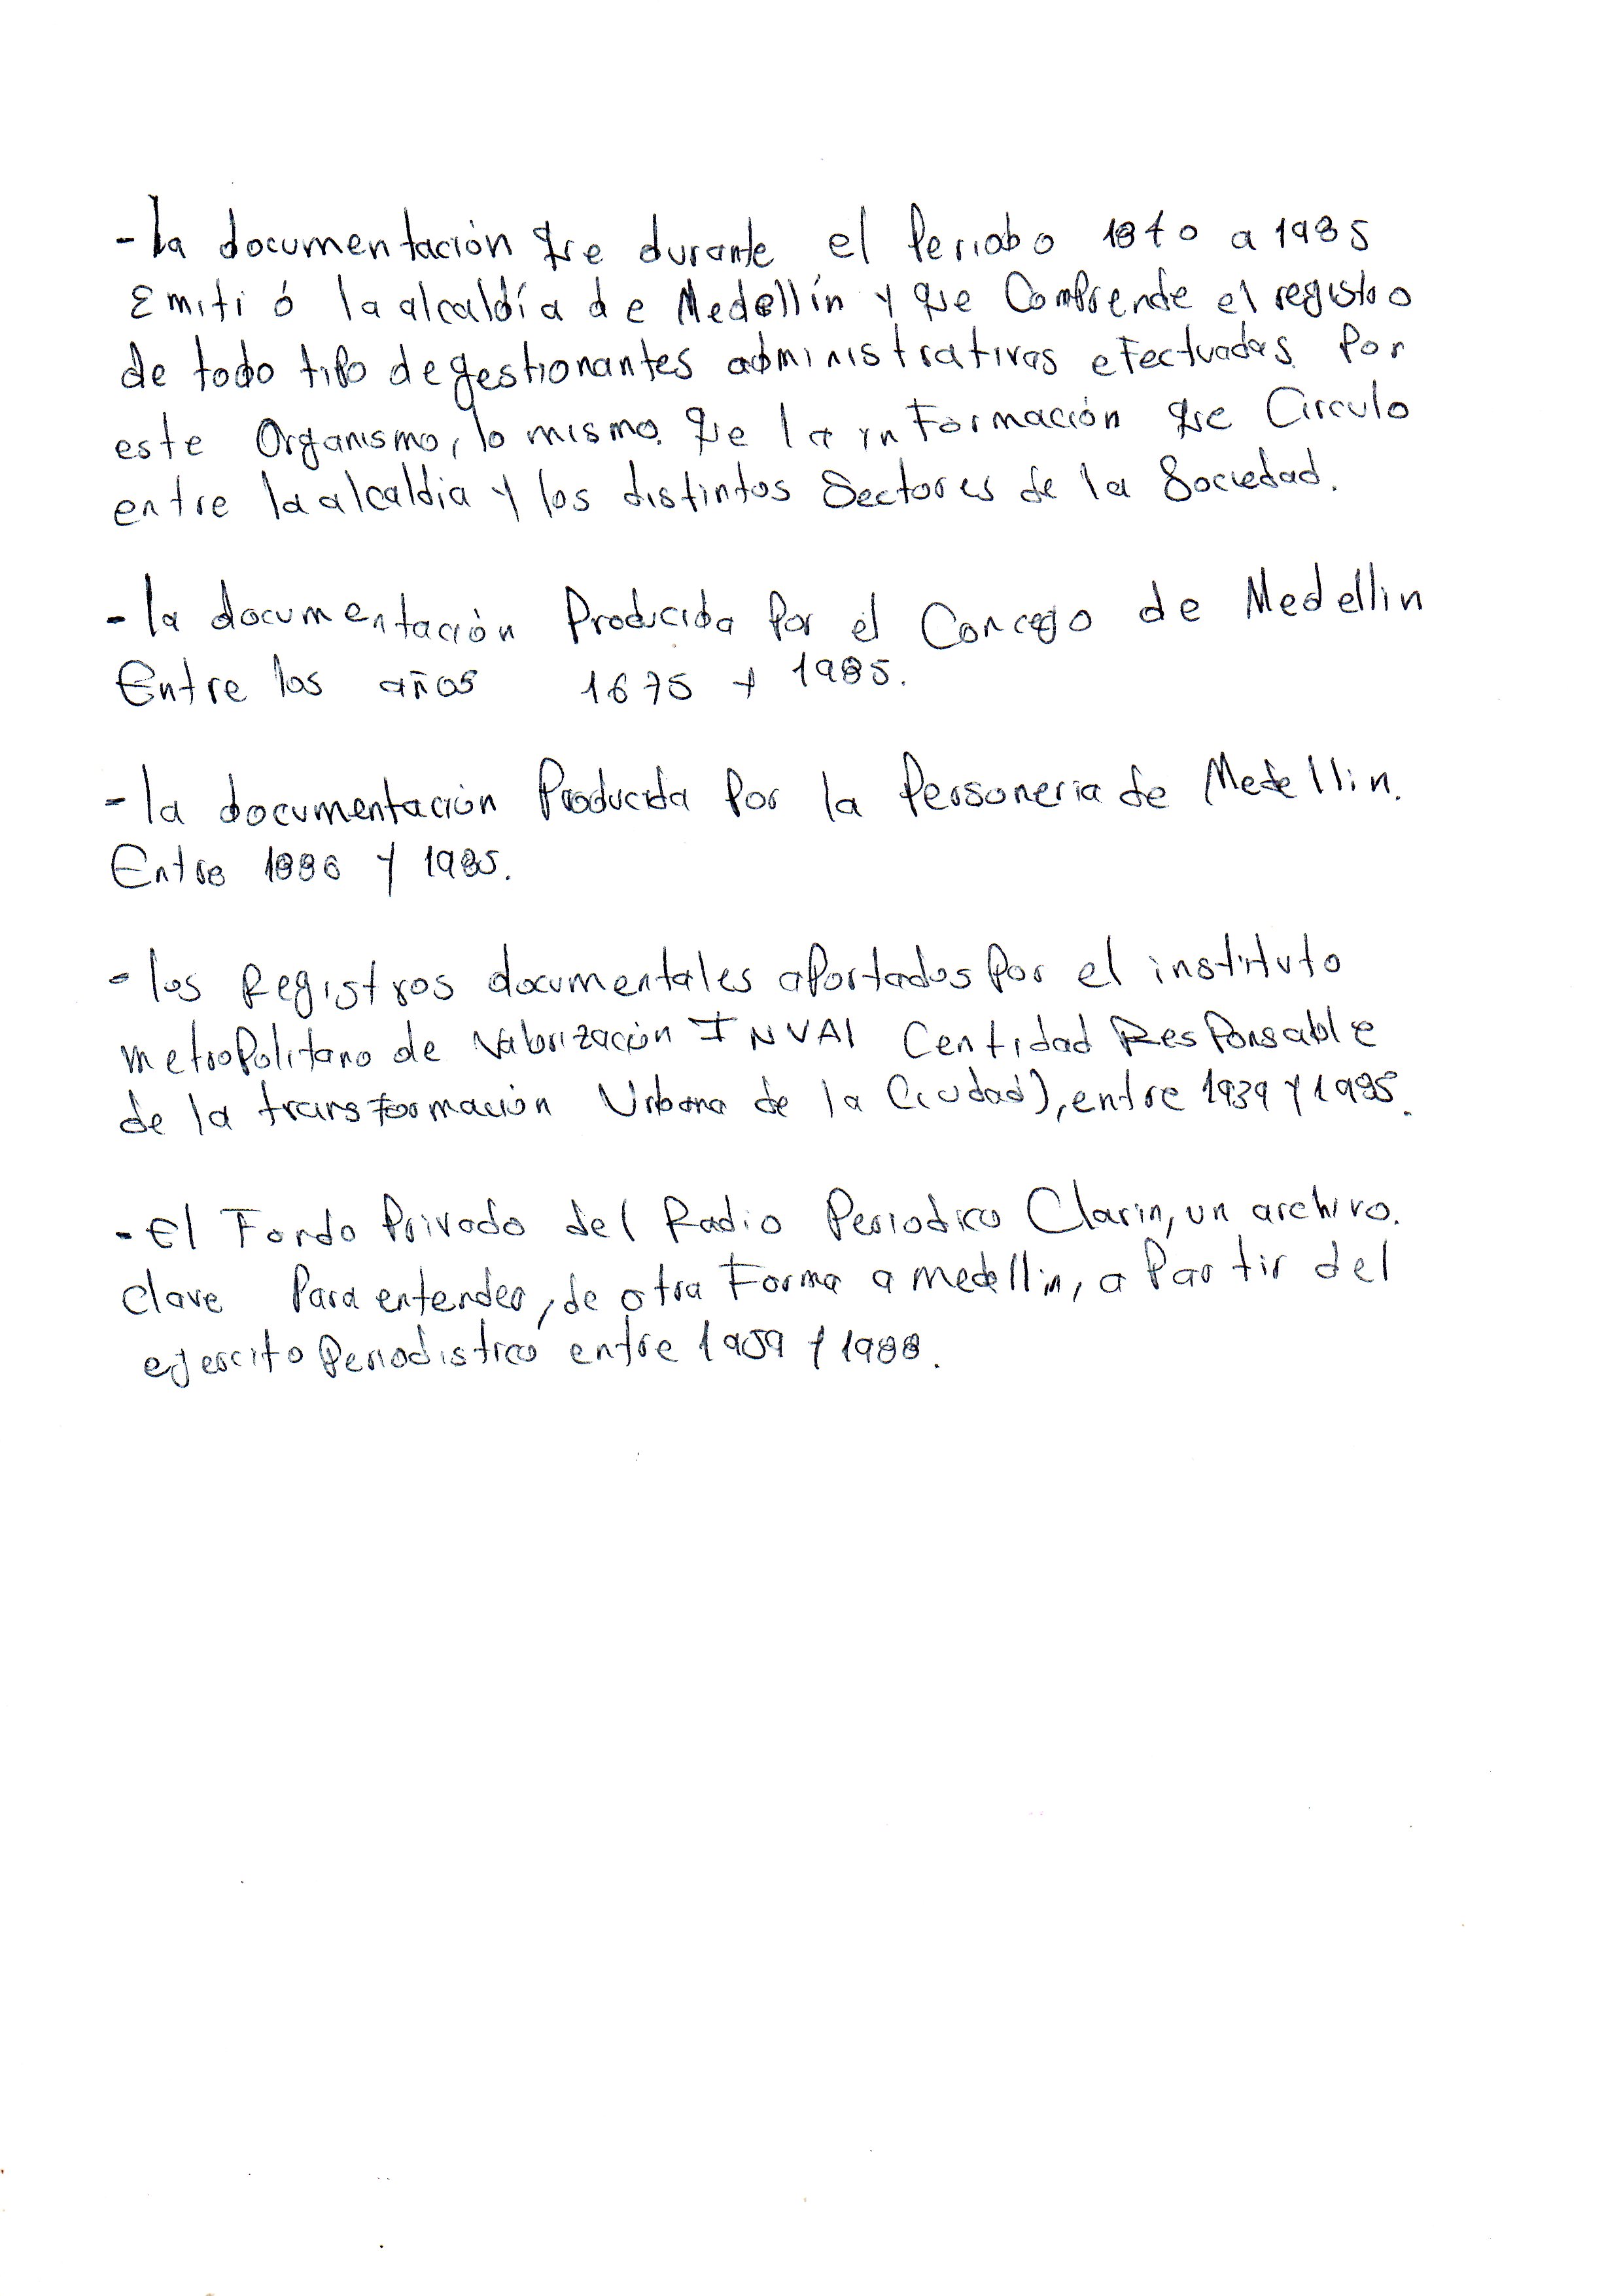 - la documentación que durante el Periodo 1840 a 1985
Emitió la alcaldía de Medellín y que Comprende el registro
de todo tipo de gestionantes administrativas efectuadas Por
este Organismo, lo mismo. que la información que Circulo
entre la alcaldia y los distintos Sectores de la Sociedad.
- la documentación Producida Por el Concejo de Medellin
Entre los años 1675 y 1985.
- la documentación Producida Por la Personeria de Medellin.
Entre 1886 y 1985.
- los Registros documentales aportados Por el instituto
metropolitano de Valorización INVAl Centidad Responsable
de la transformación Urbana de la Ciudad), entre 1939 y 1985.
- El Fondo Privado del Radio Periodico Clarin, un archivo.
Clave Para entender, de otra Forma a medellin, a Partir del
ejercito Periodistico entre 1959 y 1988.